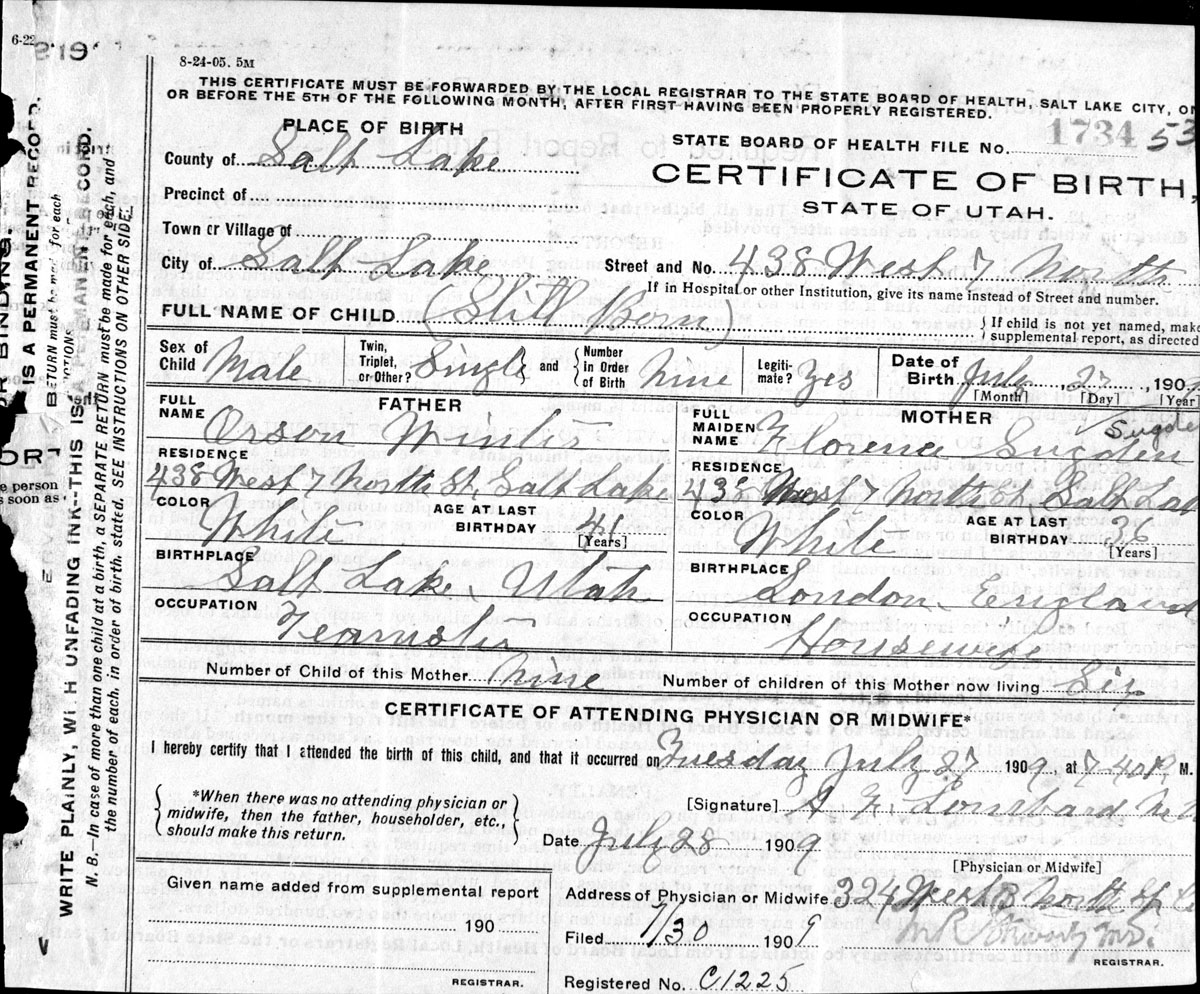 6-22
219
8-24-05. 5M
THIS CERTIFICATE MUST BE FORWARDED BY THE LOCAL REGISTRAR TO THE STATE BOARD OF HEALTH, SALT LAKE CITY, ON
OR BEFORE THE 5TH OF THE FOLLOWING MONTH, AFTER FIRST HAVING BEEN PROPERLY REGISTERED.
PLACE OF BIRTH
STATE BOARD OF HEALTH FILE NO. 1734 53
County of Salt Lake
CERTIFICATE OF BIRTH,
Precinct of
STATE OF UTAH.
Town or Village of
City of Salt Lake
Street and No. 438 West 7 North
If in Hospital or other Institution, give its name instead of Street and number.
FULL NAME OF CHILD (Still Born)
{ If child is not yet named, make
supplemental report, as directed
Sex of Child Male
Twin, Triplet, or Other? Single and { Number in Order of Birth Nine
Legitimate? Yes
Date of Birth July 27, 190
[Month] [Day] [Year]
FATHER
FULL NAME Orson Winters
RESIDENCE
438 West 7 North St. Salt Lake
COLOR White
AGE AT LAST BIRTHDAY
[Years]
BIRTHPLACE
Salt Lake, Utah
OCCUPATION
Teamster
MOTHER
Sugde
FULL MAIDEN NAME Florence Sugden
RESIDENCE
438 West 7 North St Salt Lak
COLOR White
AGE AT LAST BIRTHDAY 36
[Years]
BIRTHPLACE
London, England
OCCUPATION
Housewife
Number of Child of this Mother Nine
Number of children of this Mother now living Six
CERTIFICATE OF ATTENDING PHYSICIAN OR MIDWIFE*
I hereby certify that I attended the birth of this child, and that it occurred on Tuesday July 27 1909, at 7-40 P. M.
{ *When there was no attending physician or
midwife, then the father, householder, etc.,
should make this return. }
[Signature] Lombard
Date July 28 1909
[Physician or Midwife]
Given name added from supplemental report
190
REGISTRAR.
Address of Physician or Midwife 324 West 3 North St
Filed 7/30 1909
REGISTRAR.
Registered No. C1225
WRITE PLAINLY WITH UNFADING INK--THIS IS A PERMANENT RECORD.
N. B.--In case of more than one child at a birth, a SEPARATE RETURN must be made for each, and
the number of each, in order of birth, stated. SEE INSTRUCTIONS ON OTHER SIDE.
IS A PERMANENT RECORD.
RETURN must be made for each
R BINDING.
e person
s soon as